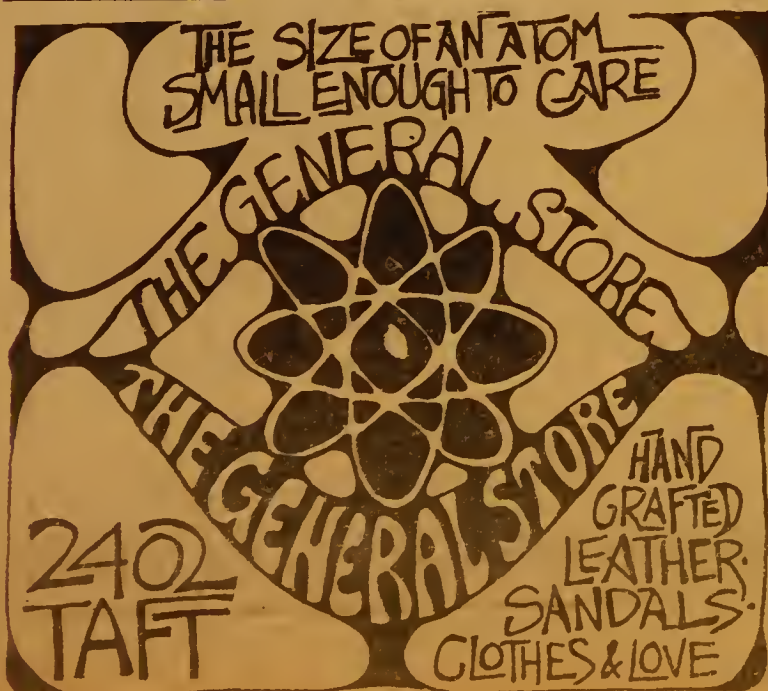 THE SIZE OF AN ATOM
SMALL ENOUGH TO CARE
THE GENERAL STORE
THE GENERAL STORE
2402
TAFT
HAND
CRAFTED
LEATHER·
SANDALS·
CLOTHES & LOVE